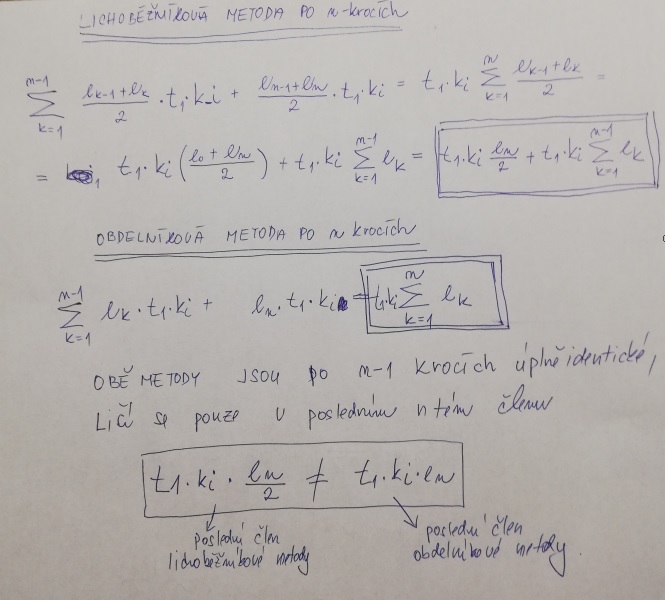 LICHOBĚŽNÍKOVÁ METODA PO n-krocích
\sum_{k=1}^{n-1} \frac{e_{k-1}+e_k}{2} · t_1·k_i + \frac{e_{n-1}+e_n}{2} · t_1·k_i = t_1·k_i \sum_{k=1}^{n} \frac{e_{k-1}+e_k}{2} =
= t_1·k_i (\frac{e_0+e_n}{2}) + t_1·k_i \sum_{k=1}^{n-1} e_k = t_1·k_i \frac{e_n}{2} + t_1·k_i \sum_{k=1}^{n-1} e_k
OBDELNÍKOVÁ METODA PO n krocích
\sum_{k=1}^{n-1} e_k·t_1·k_i + e_n·t_1·k_i = t_1·k_i \sum_{k=1}^{n} e_k
OBĚ METODY JSOU PO n-1 krocích úplně identické,
Ličí se pouze v posledním ntém členu
t_1·k_i · \frac{e_n}{2} ≠ t_1·k_i·e_n
poslední člen
lichoběžníkové metody
poslední člen
obdelníkové metody.